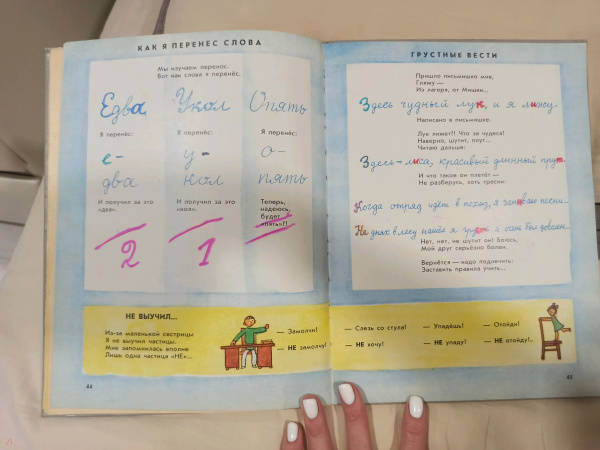 КАК Я ПЕРЕНЕС СЛОВА
Мы изучаем перенос.
Вот как слова я перенёс.
Едва Укол Опять
Я перенёс: Я перенёс: Я перенёс:
е- у- о-
два кол пять
И получил за это «два». И получил за это «кол». Теперь, надеюсь, будет «пять»!!
2 1
НЕ ВЫУЧИЛ...
Из-за маленькой сестрицы
Я не выучил частицы.
Мне запомнилась вполне
Лишь одна частица «НЕ»...
— Замолчи!
— НЕ замолчу!
44
ГРУСТНЫЕ ВЕСТИ
Пришло письмишко мне,
Гляжу —
Из лагеря, от Мишки...
Здесь чудный лук, и я лижу.
Написано в письмишке.
Лук лижет?! Что за чудеса!
Наверно, шутит, плут...
Читаю дальше:
Здесь лиса, красивый длинный прут.
И что такое он плетёт —
Не разберусь, хоть тресни:
Когда отряд идёт в поход, я
песни...
Нет, нет, не шутит он! Боюсь,
Мой друг серьёзно болен.
Вернётся — надо подлечить:
Заставить правила учить...
— Слезь со стула! — Упадёшь! — Отойди!
— НЕ хочу! — НЕ упаду! — НЕ отойду!..